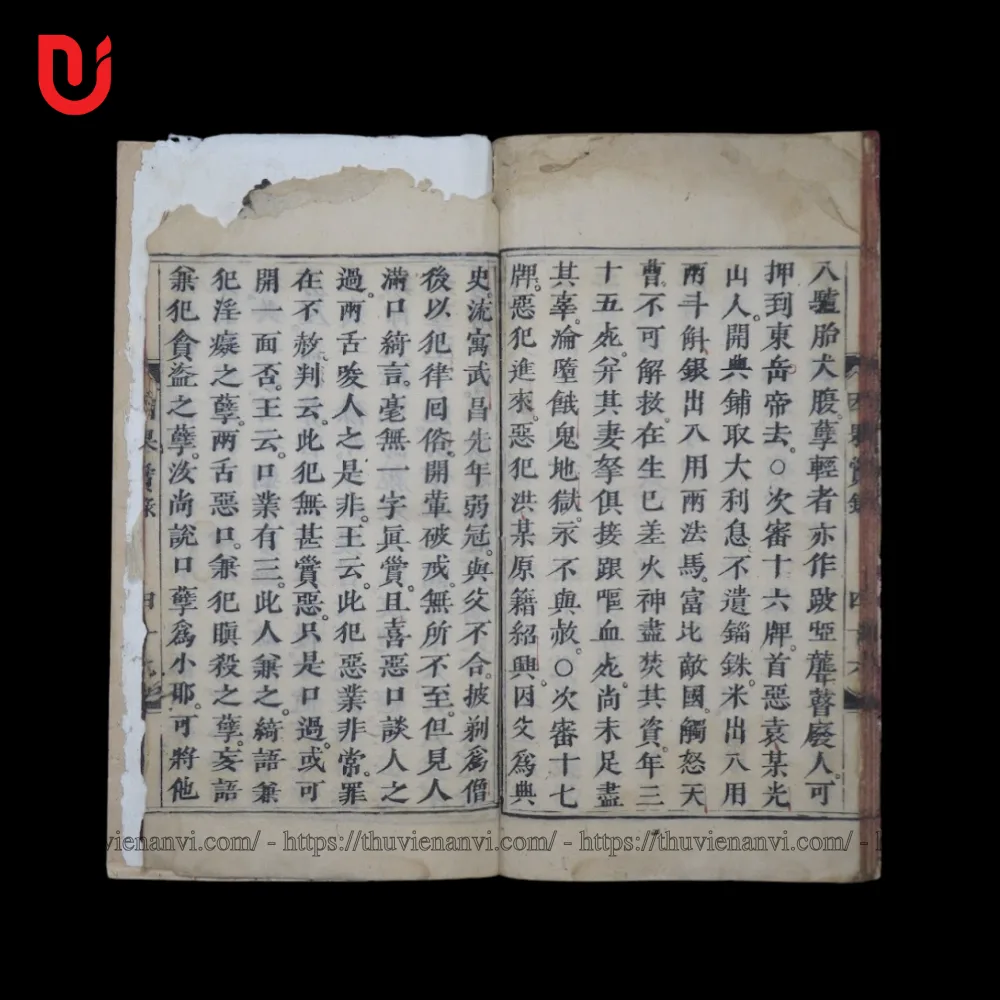 八驢胎犬腹。孽輕者亦作跛啞聾瞽廢人。可
押到東岳帝去。○次審十六牌。首惡袁某光
山人。開典鋪取大利息。不遺錙銖。米出八用
兩斗斛。銀出八用兩法馬。富比敵國。觸怒天
曹。不可解救。在生巳差火神盡焚其資。年三
十五死。并其妻孥俱接跟嘔血死。尚未足盡
其辜。淪墮餓鬼地獄。永不與赦。○次審十七
牌。惡犯進來。惡犯洪某原籍紹興。因父爲典
史。流寓武昌。先年弱冠。與父不合。披剃爲僧
後以犯律回俗。開葷破戒。無所不至。但見人
滿口綺言。毫無一字眞實。且喜惡口談人之
過。兩舌唆人之是非。王云。此犯惡業非常。罪
在不赦。判云。此犯無甚實惡。只是口過。或可
開一面否。王云。口業有三。此人兼之。綺語兼
犯淫癡之孽。兩舌惡口。兼犯瞋殺之孽。妄語
兼犯貪盜之孽。汝尚說口孽爲小耶。可將他
果實錄
https://thuvienanvi.com/ - https://thuvienanvi.com/ -